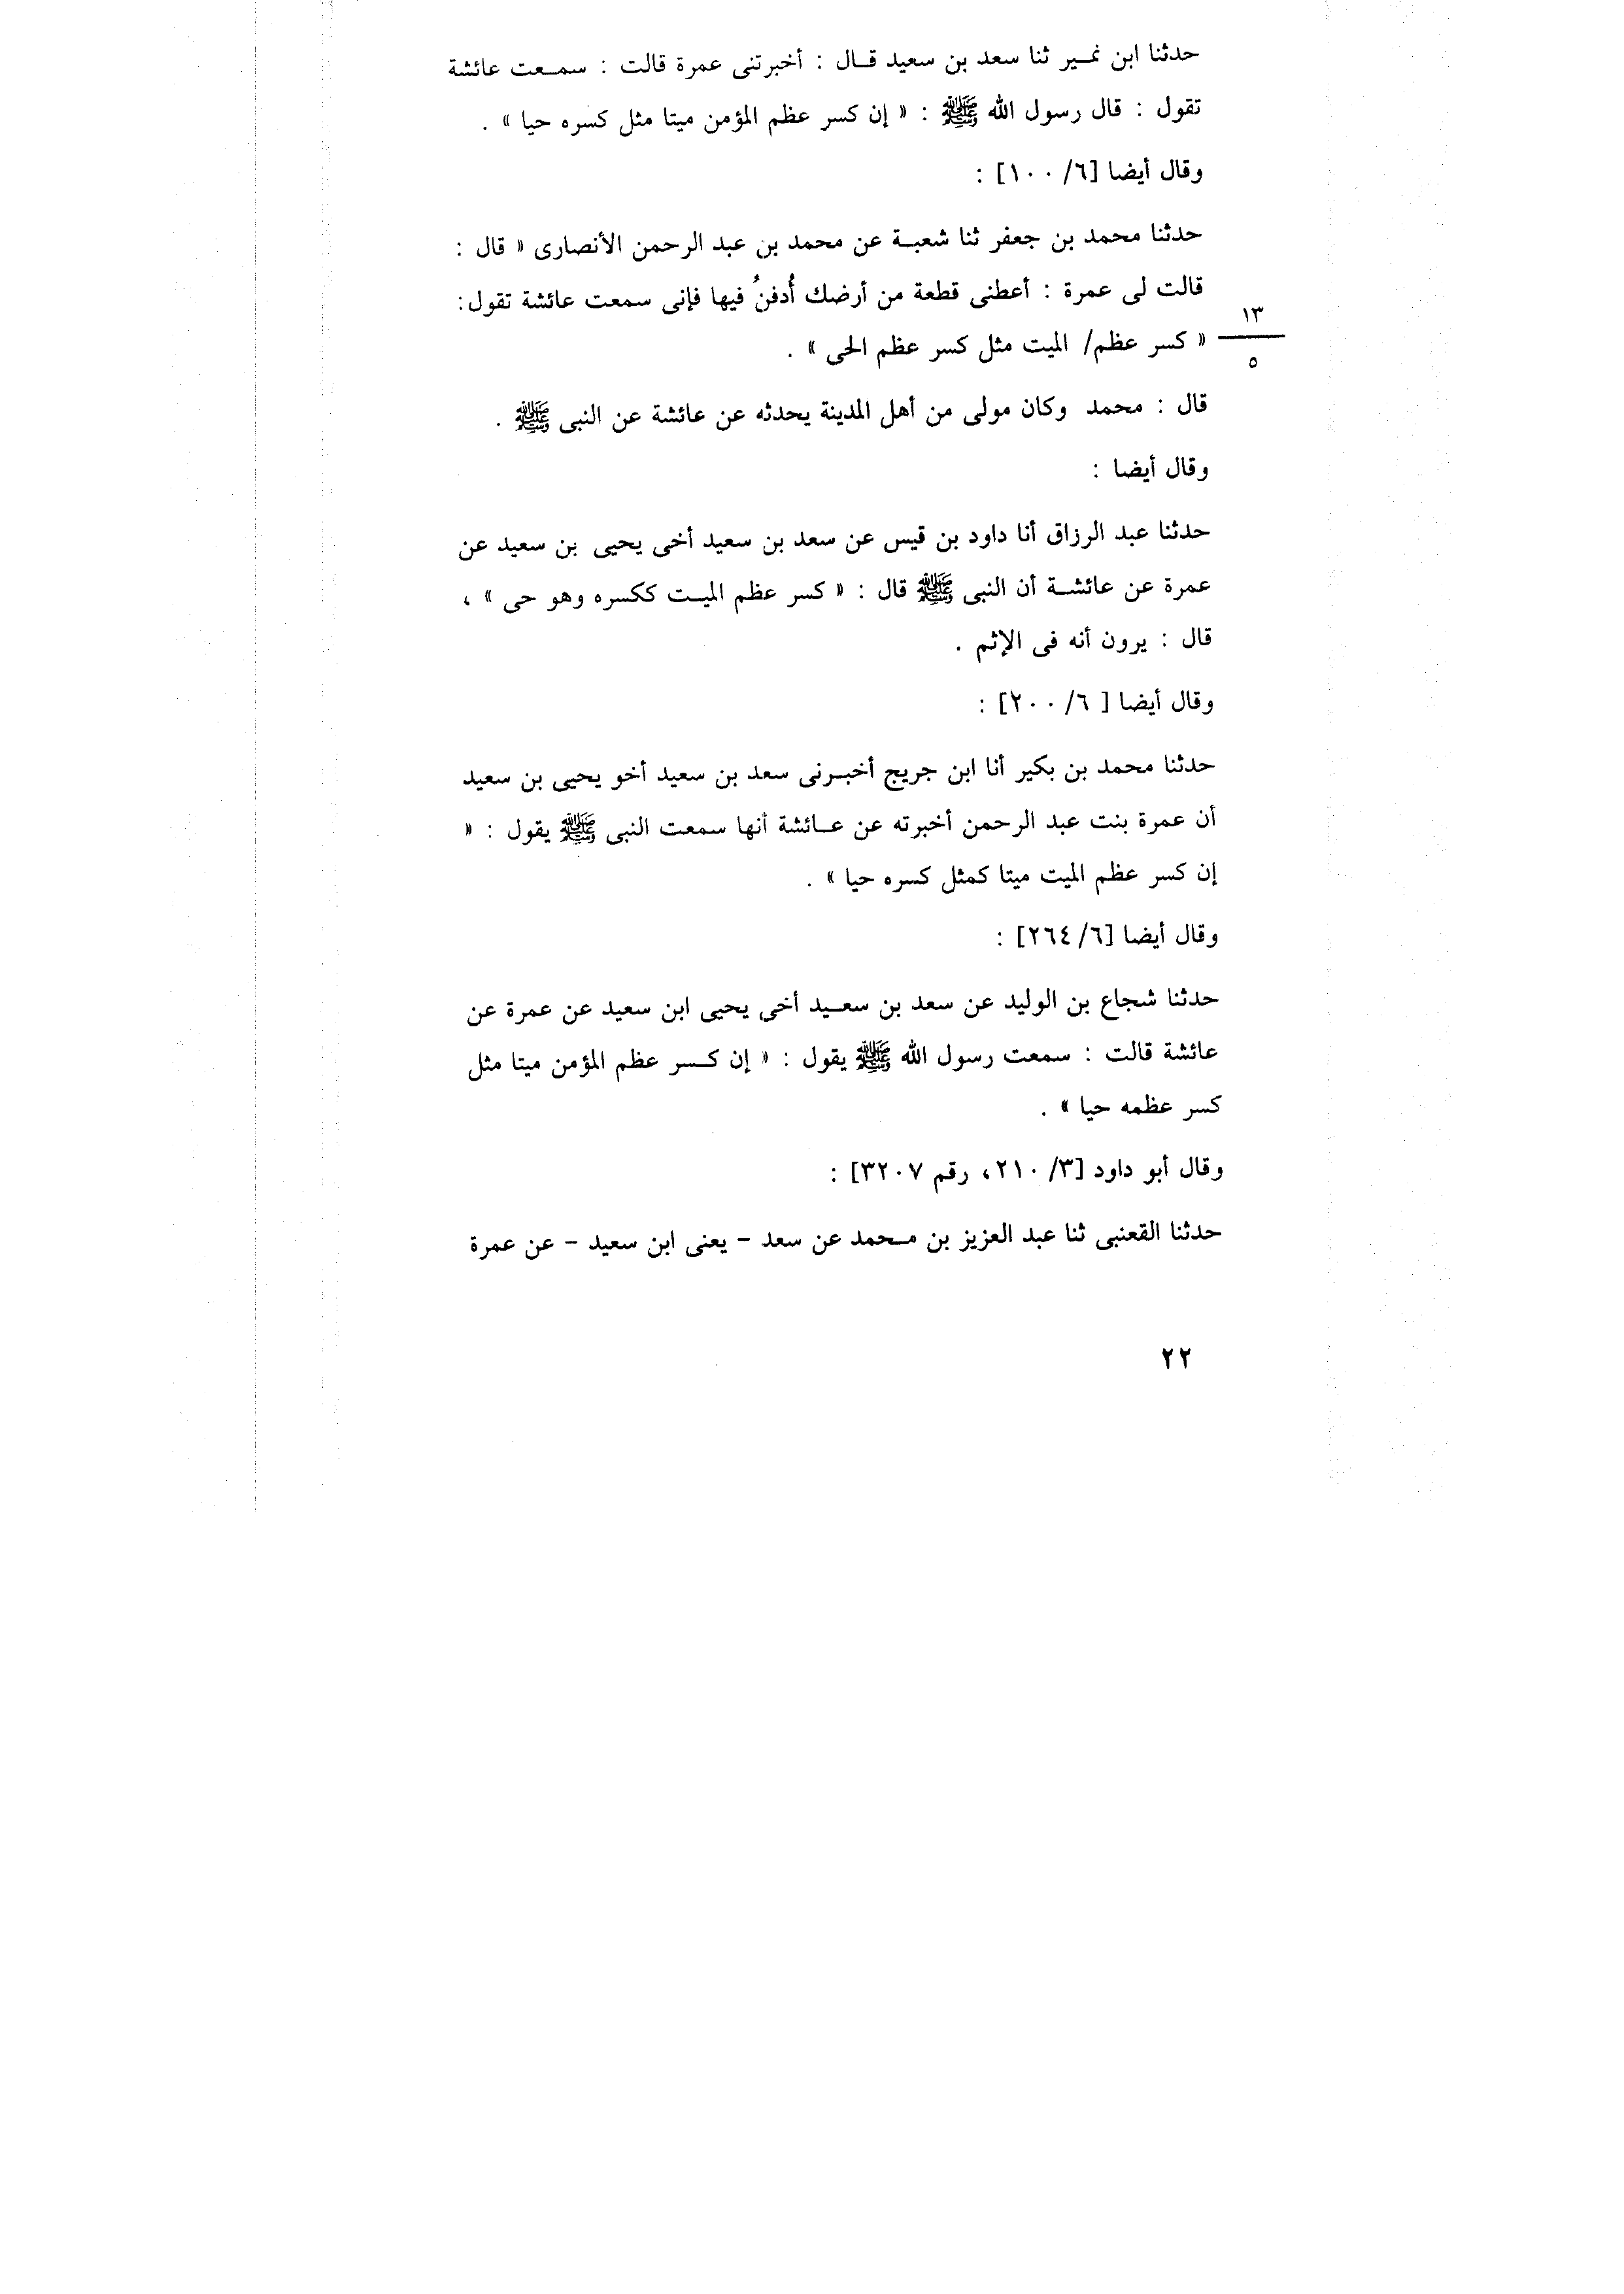 حدثنا ابن نمير ثنا سعد بن سعيد قال : أخبرتنى عمرة قالت : سمعت عائشة
تقول : قال رسول الله ﷺ : « إن كسر عظم المؤمن ميتا مثل كسره حيا » .
وقال أيضا [٦/ ١٠٠] :
حدثنا محمد بن جعفر ثنا شعبة عن محمد بن عبد الرحمن الأنصارى « قال :
قالت لى عمرة : أعطنى قطعة من أرضك أُدفنُ فيها فإنى سمعت عائشة تقول:
١٣
« كسر عظم/ الميت مثل كسر عظم الحى » .
٥
قال : محمد وكان مولى من أهل المدينة يحدثه عن عائشة عن النبى ﷺ .
وقال أيضا :
حدثنا عبد الرزاق أنا داود بن قيس عن سعد بن سعيد أخى يحيى بن سعيد عن
عمرة عن عائشة أن النبى ﷺ قال : « كسر عظم الميت ككسره وهو حى » ،
قال : يرون أنه فى الإثم .
وقال أيضا [ ٦/ ٢٠٠] :
حدثنا محمد بن بكير أنا ابن جريج أخبرنى سعد بن سعيد أخو يحيى بن سعيد
أن عمرة بنت عبد الرحمن أخبرته عن عائشة أنها سمعت النبى ﷺ يقول : «
إن كسر عظم الميت ميتا كمثل كسره حيا » .
وقال أيضا [٦/ ٢٦٤] :
حدثنا شجاع بن الوليد عن سعد بن سعيد أخى يحيى ابن سعيد عن عمرة عن
عائشة قالت : سمعت رسول الله ﷺ يقول : « إن كسر عظم المؤمن ميتا مثل
كسر عظمه حيا » .
وقال أبو داود [٣/ ٢١٠، رقم ٣٢٠٧] :
حدثنا القعنبى ثنا عبد العزيز بن محمد عن سعد – يعنى ابن سعيد – عن عمرة
٢٢